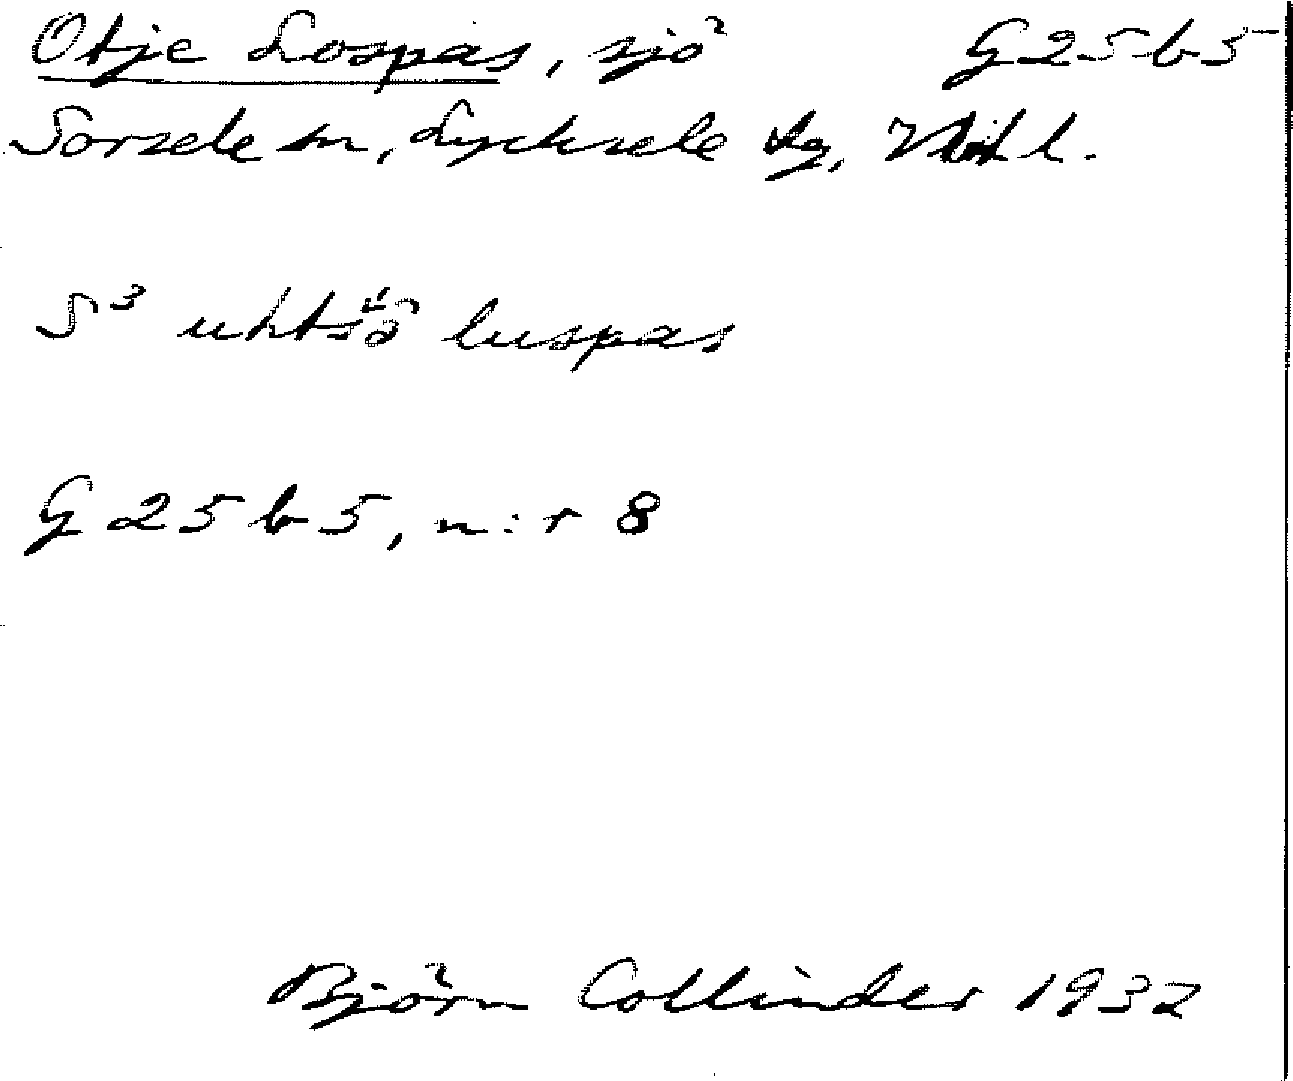 Otje Lospas, sjö G25b5
Sorsele sn, Lycksele lg, Vbtl.
S³ uhtsȧ̂ luspas
G25b5, n:r 8
Björn Collinder 1932